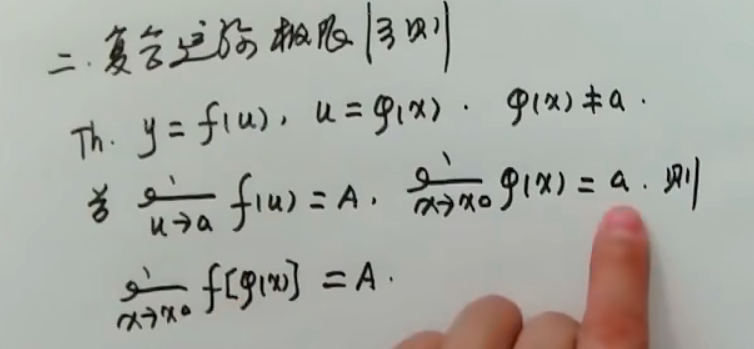 二.复合运算极限|习则|
Th. y = f(u), u = φ(x). φ(x) ≠ a.
若 lim u→a f(u) = A, lim x→x0 φ(x) = a. 则
lim x→x0 f[φ(x)] = A.